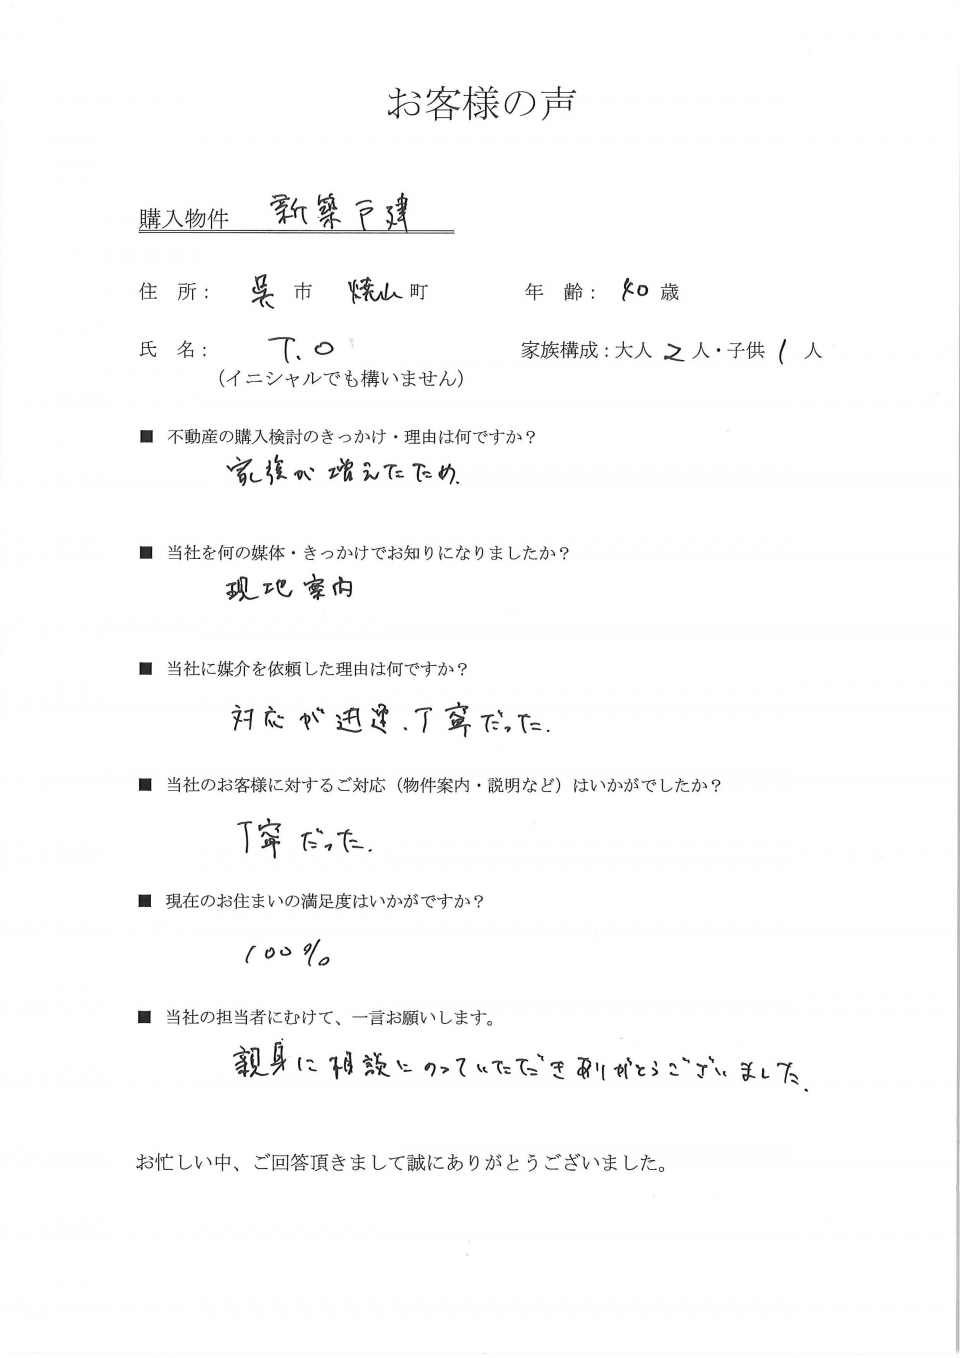 お客様の声
購入物件 新築戸建
住 所： 呉 市 焼山 町 年 齢： 40 歳
氏 名： T.O 家族構成：大人 2 人・子供 1 人
（イニシャルでも構いません）
■ 不動産の購入検討のきっかけ・理由は何ですか？
家族が増えたため.
■ 当社を何の媒体・きっかけでお知りになりましたか？
現地案内
■ 当社に媒介を依頼した理由は何ですか？
対応が迅速、丁寧だった.
■ 当社のお客様に対するご対応（物件案内・説明など）はいかがでしたか？
丁寧だった.
■ 現在のお住まいの満足度はいかがですか？
100%
■ 当社の担当者にむけて、一言お願いします。
親身に相談にのっていただきありがとうございました.
お忙しい中、ご回答頂きまして誠にありがとうございました。